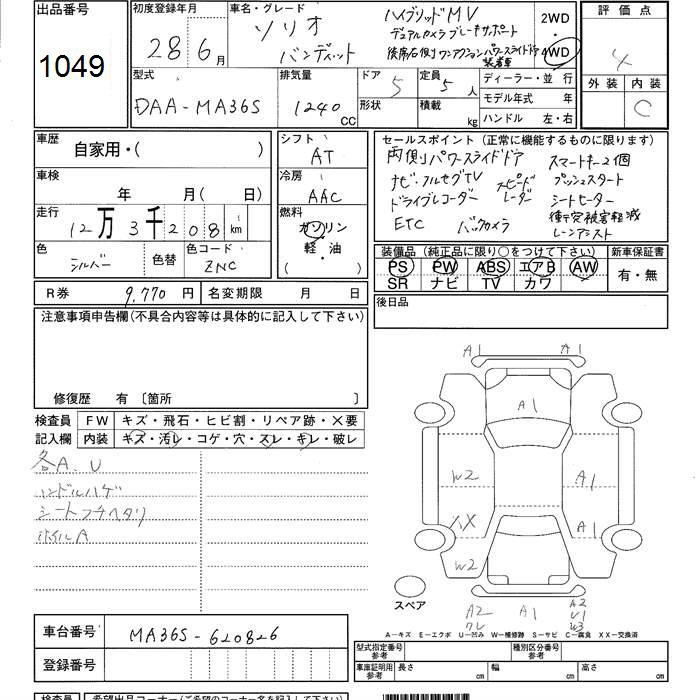 出品番号
1049
初度登録年月
28 6月
車名・グレード
ソリオ
バンディット
ハイブリッドMV
デュアルカメラブレーキサポート
後席右側ワンアクションパワースライドドア
装着車
2WD
4WD
評価点
4
外装 内装
C
型式
DAA-MA36S
排気量
1240 CC
ドア 5
形状
定員 5 人
積載 kg
ディーラー・並行
モデル年式 年
ハンドル 左・右
車歴
自家用・( )
車検
年 月( 日)
走行
12万3千208 km
色
シルバー
色替
色コード
ZNC
シフト
AT
冷房
AAC
燃料
ガソリン
軽・油
( ・ )
セールスポイント (正常に機能するものに限ります)
両側パワースライドドア スマートキー2個
ナビ・フルセグTV スピード プッシュスタート
ドライブレコーダー レーダー シートヒーター
ETC バックカメラ 衝突被害軽減
レーンアシスト
装備品 (純正品に限り○をつけて下さい)
PS PW ABS エアB AW
SR ナビ TV カワ
新車保証書
有・無
R券 9,770 円
名変期限 月 日
後日品
注意事項申告欄(不具合内容等は具体的に記入して下さい)
修復歴 有 〔箇所 〕
検査員
記入欄
FW キズ・飛石・ヒビ割・リペア跡・X要
内装 キズ・汚レ・コゲ・穴・スレ・キレ・破レ
各A、U
ハンドルハゲ
シートフチヘタリ
ホイルA
A1 A1
A1
W2 A1
XX A1
W2
A2
クレ
A1
A2
U1
W3
スペア
A−キズ E−エクボ U−凹み W−補修跡 S−サビ C−腐食 XX−交換済
車台番号 MA36S-620826
登録番号
型式指定番号
参考
種別区分番号
参考
車庫証明用
参考
長さ cm 幅 cm 高さ cm
検査員
希望出品コーナー(ご希望のコーナー名を記入下さい)